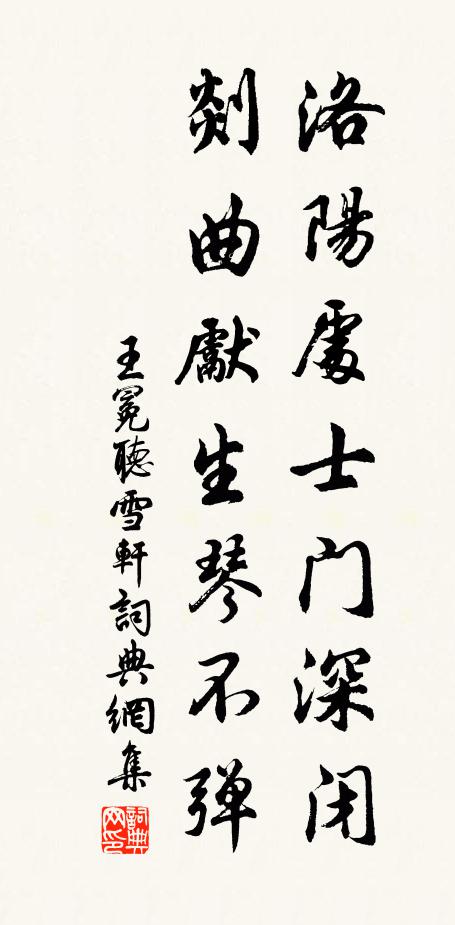 洛陽處士門深闭
剡曲獻生琴不弹
王冕聴雪軒詞典網集
詞典网印